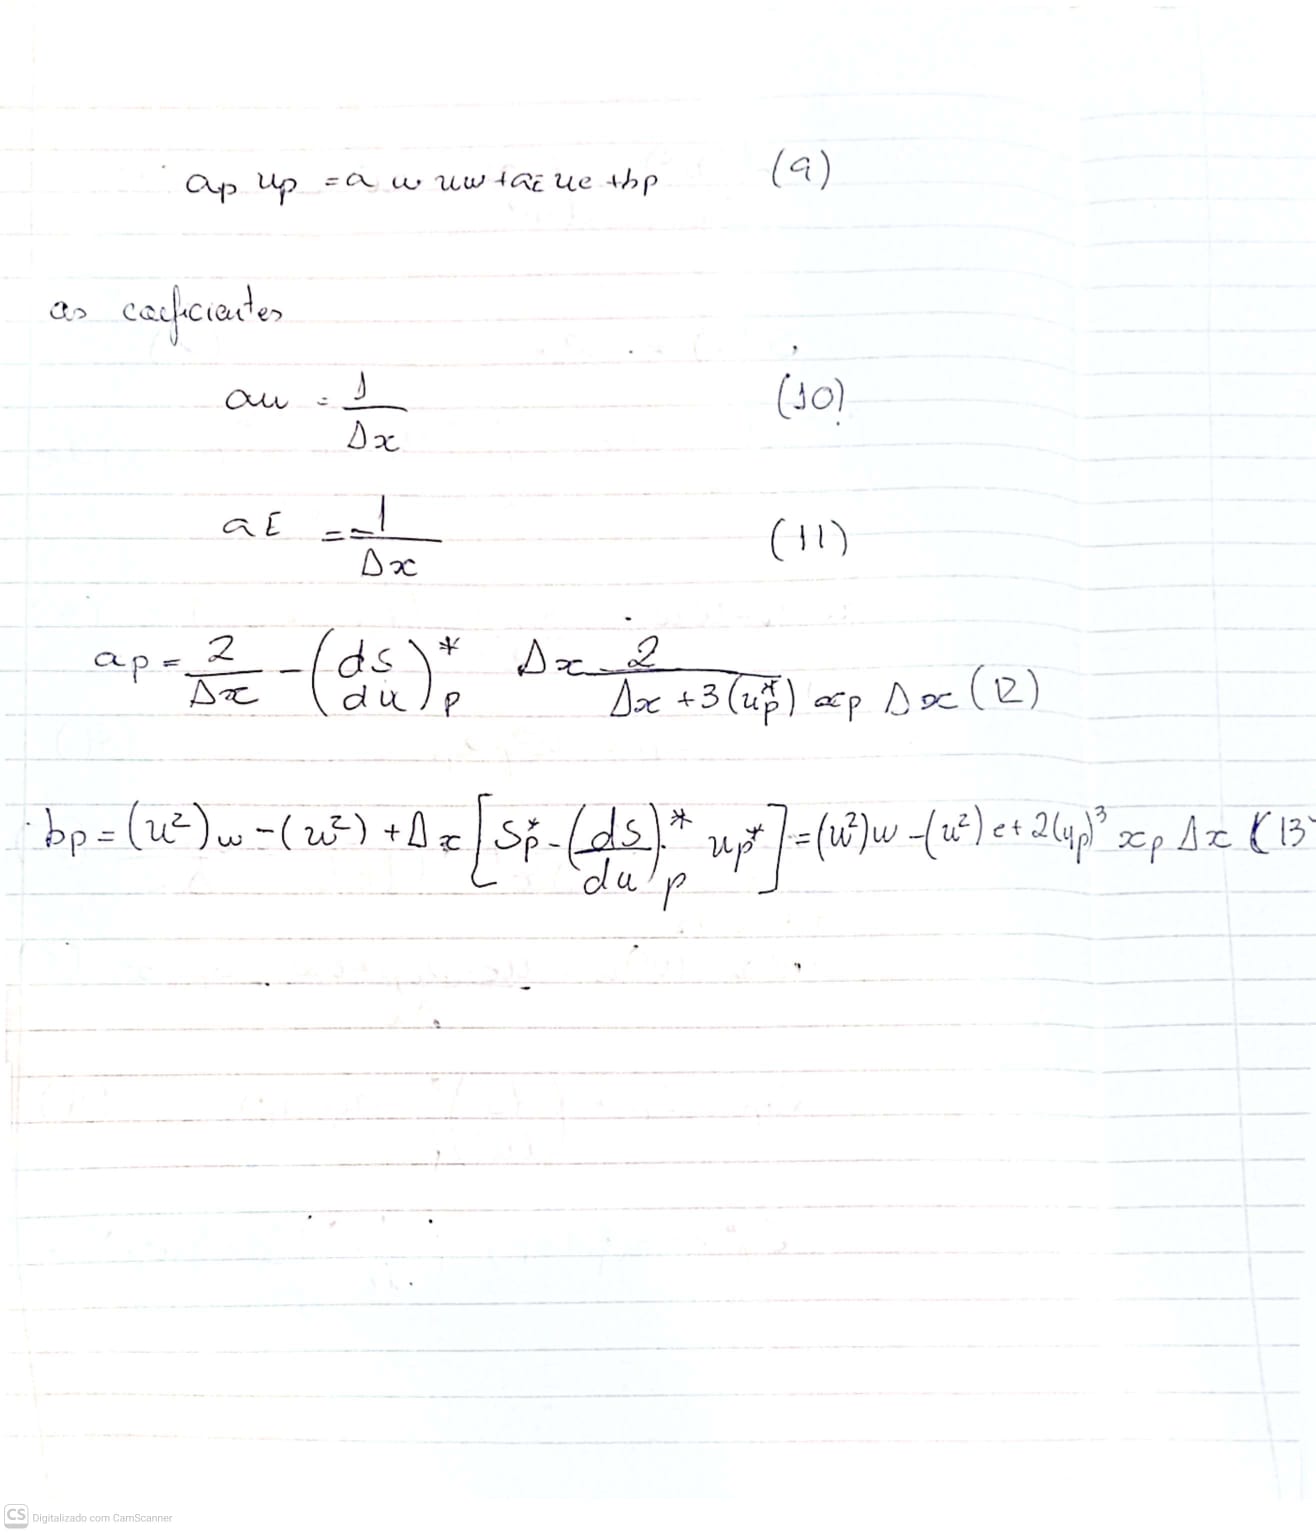 ap up = a w uw + aE ue + bp (9)
as coeficientes
aw = 1/Δx (10)
aE = 1/Δx (11)
ap = 2/Δx - (ds/du)*p Δx 2/Δx + 3(u*p) xp Δx (12)
bp = (u²)w - (u²) + Δx [S*p - (ds/du)*p up*] = (u²)w - (u²)e + 2(up)³ xp Δx (13
CS Digitalizado com CamScanner